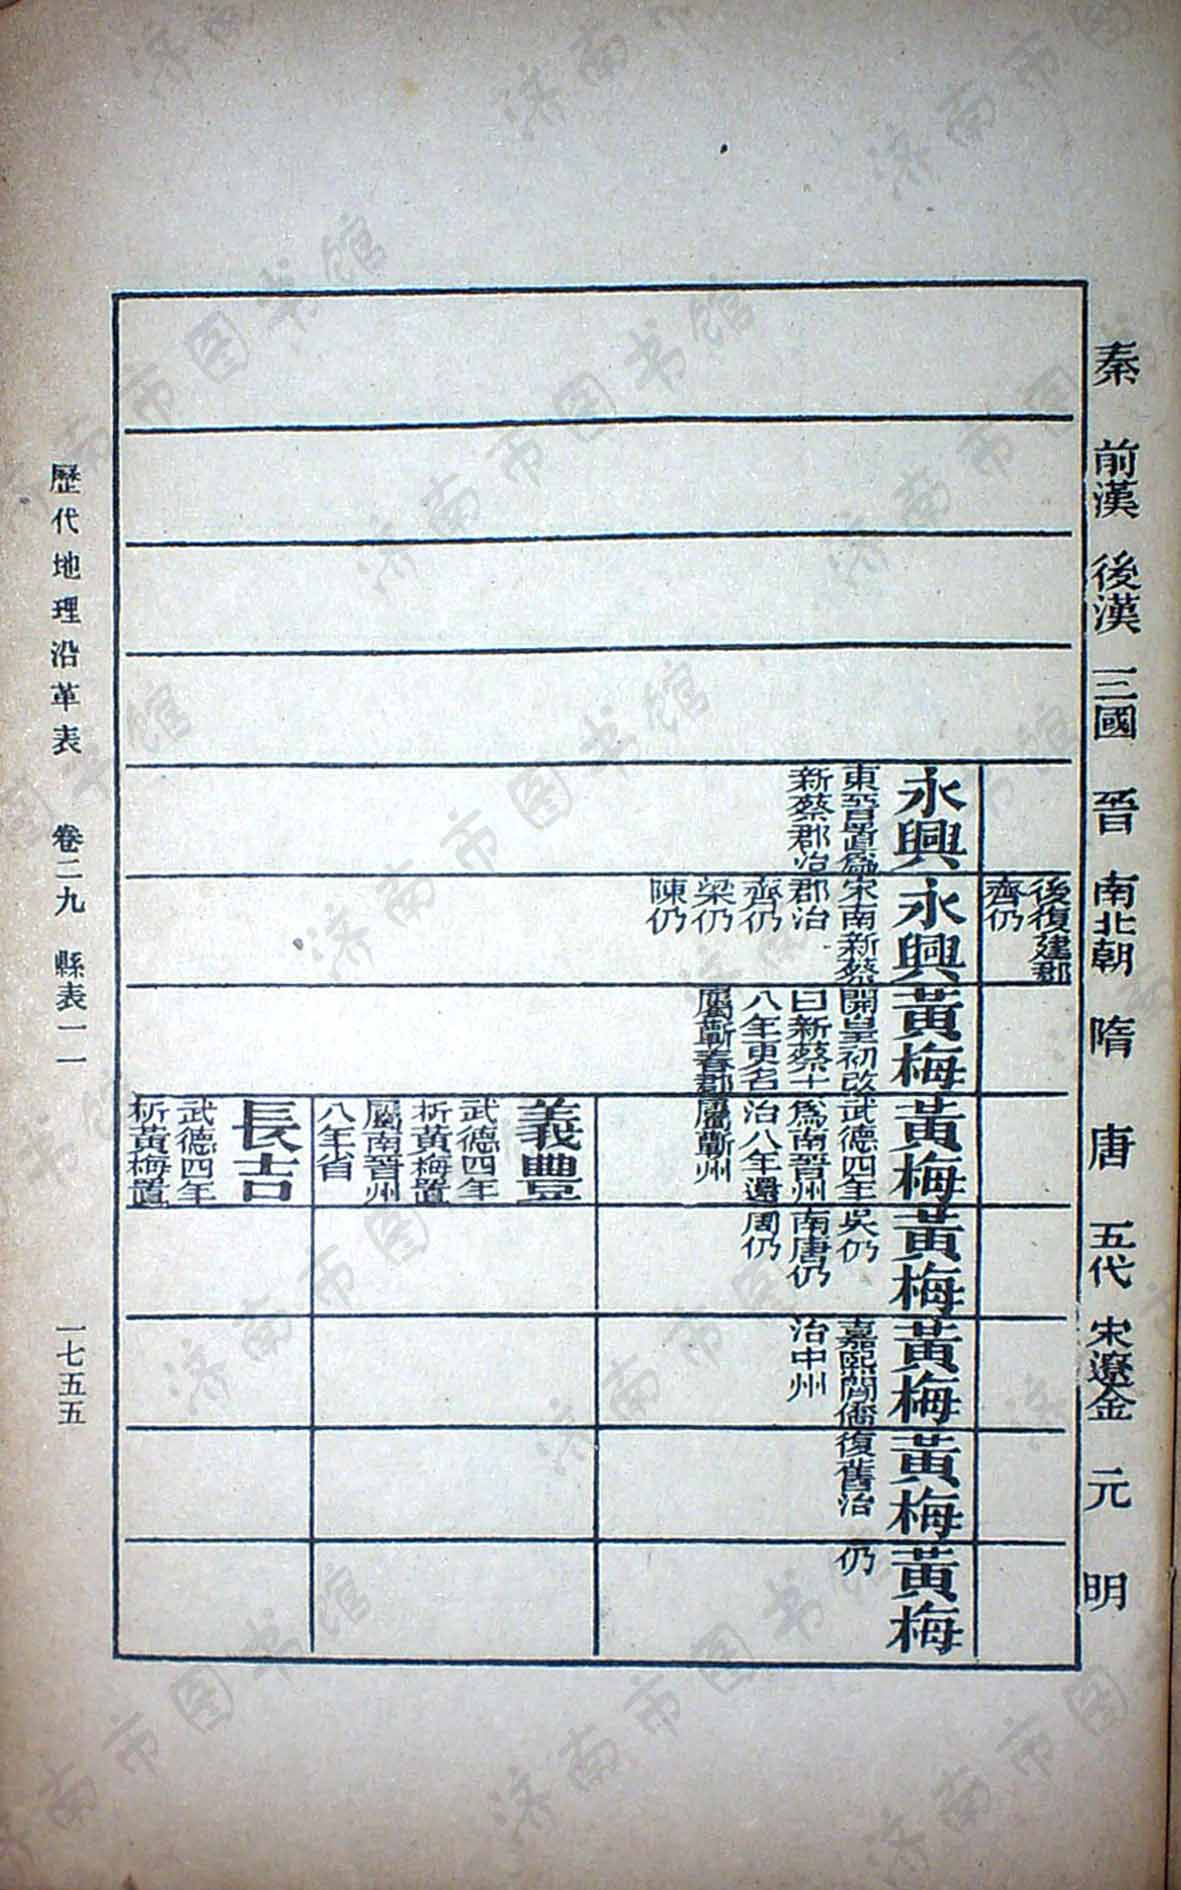 秦
前漢
後漢
三國
晉
南北朝
隋
唐
五代
宋遼金
元
明
後復建郡
齊仍
永興
東晉置爲
新蔡郡治
永興
宋南新蔡
郡治
齊仍
梁仍
陳仍
黃梅
開皇初改
曰新蔡十
八年更名
屬蘄春郡
黃梅
武德四年
爲南晉州
治八年還
屬蘄州
黃梅
吳仍
南唐仍
周仍
黃梅
嘉熙閒僑
治中州
黃梅
復舊治
黃梅
仍
義豐
武德四年
析黃梅置
屬南晉州
八年省
長吉
武德四年
析黃梅置
歷代地理沿革表 卷二九 縣表一一 一七五五
济南市图书馆